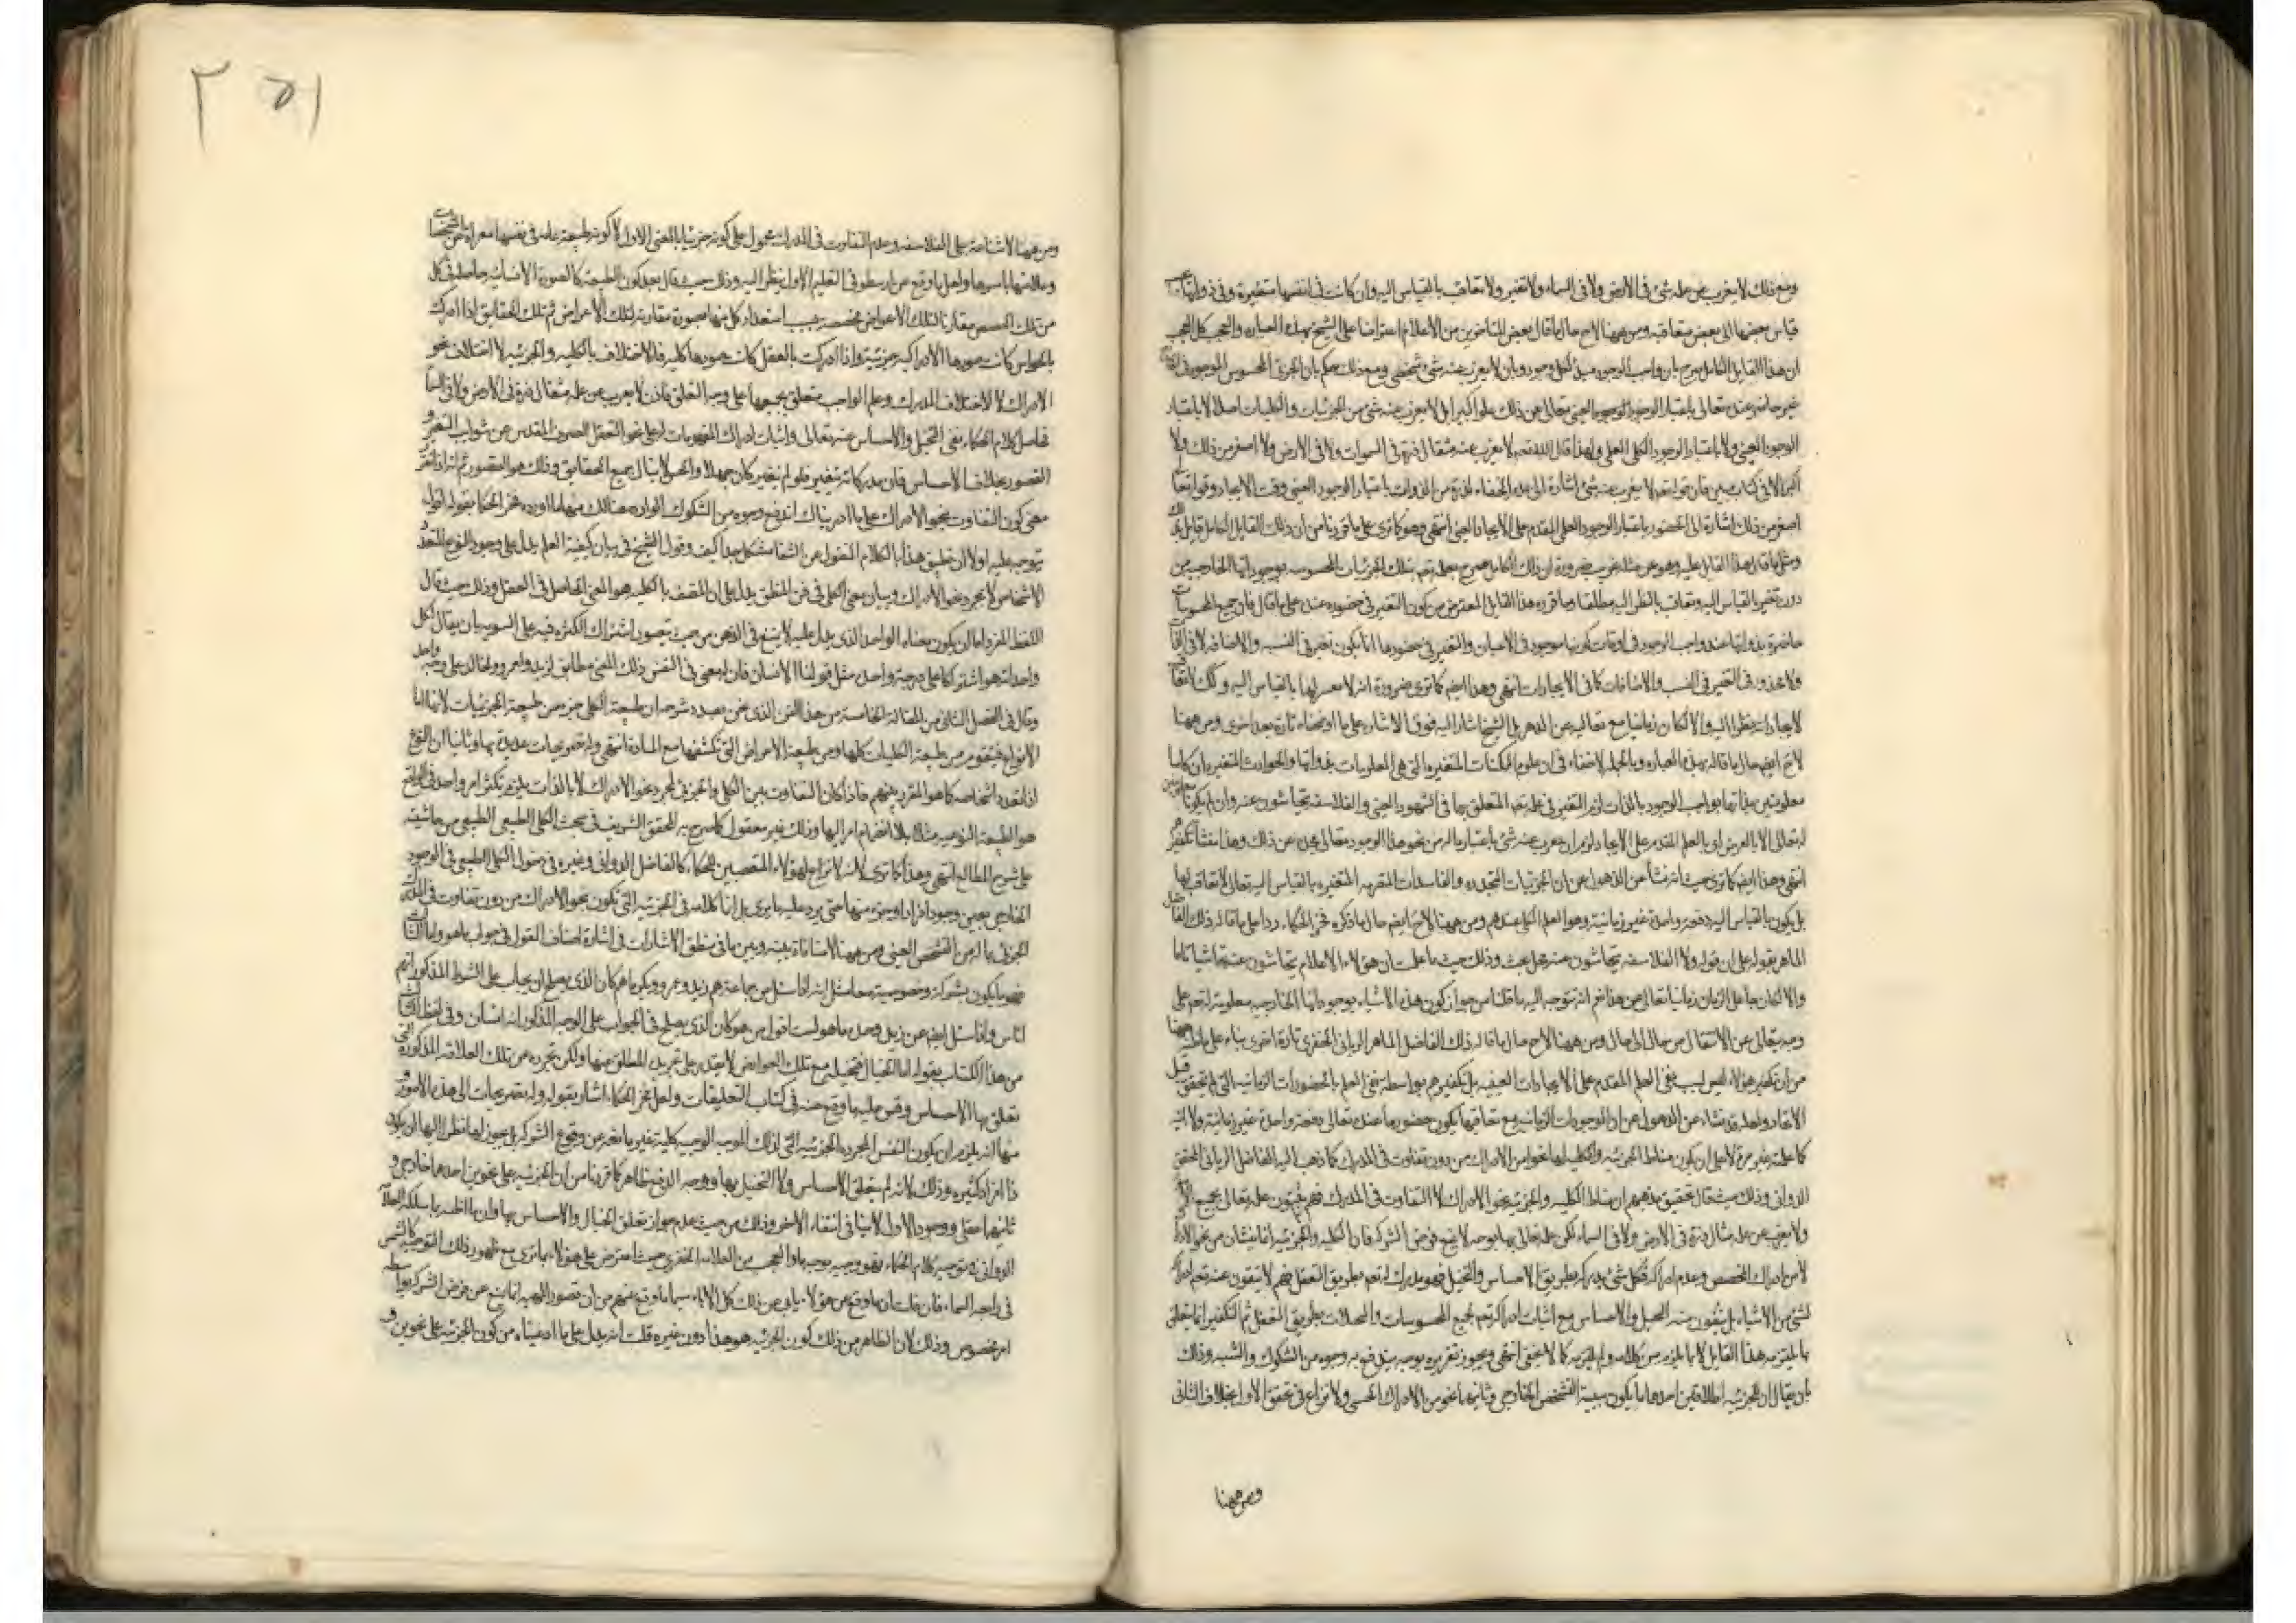 ومع ذلك لا يعزب عن علمه شئ فى الأرض ولا فى السماء ولا تغير ولا تعاقب بالقياس اليه وان كانت فى انفسها متغيرة وفى ذواتها
قياس بعضها الى بعض متعاقبة ومن ههنا لاح حال ما قال بعض المتأخرين من الأعلام اعتراضا على الشيخ بهذه العبارة والعجب كل العجب
ان هذا القايل الكامل صرح بان واجب الوجود مبدأ لكل وجود وبان لا يعزب عنه شئ شخصى ومع ذلك حكم بان الجزئ المحسوس الموجود فى
غير حاضر عنده تعالى باعتبار الوجود العينى تعالى عن ذلك علوا كبيرا بل لا يعزب عنه شئ من الجزئيات والكليات اصلا لا باعتبار
الوجود العينى ولا باعتبار الوجود الكلى العلمى ولهذا قال الله تعه لا يعزب عنه مثقال ذرة فى السموات ولا فى الارض ولا اصغر من ذلك ولا
أكبر الا فى كتاب مبين فان قوله تعه لا يعزب عنه شئ اشارة الى عدم الخفاء لذرة من الذوات باعتبار الوجود العينى وقت الايجاد وقوله تعا
اصغر من ذلك اشارة الى الحضور باعتبار الوجود العلمى المقدم على الايجاد العينى انتهى وهو كما ترى على ما قررنا من ان ذلك القايل الكامل قايل
ومثل ما قال هذا القايل عليه وهو عن مثله غريب ضرورة ان ذلك الكامل صرح بعلمه تعه بتلك الجزئيات المحسوسة بوجوداتها الخارجية من
دون تغير بالقياس اليه وتعاقب بالنظر اليه مطلقا وما قرره هذا القايل المعترض من كون التغير فى حضوره عنده على ما قال فان جميع المحسوسات
حاضرة بذواتها عند واجب الوجود فى اوقات كونها موجودة فى الاعيان والتغير فى حضورها انما يكون تغير فى النسب والاضافة لا فى
ولا محذور فى التغير فى النسب والاضافات كما فى الايجادات انتهى وهذا ايضا كما ترى ضرورة انه لا بالقياس اليه وكذلك لا تعا
لايجاداته نظرا اليه والا لكان زمانيا مع تعاليه عن الدهر بل الشيخ اشار اليه فوق الاشارة على ما اوضحناه تارة بعد اخرى ومن ههنا
لاح ايضا حال ما قاله بهذه العبارة وبالجملة لا خفاء فى ان علوم الممكنات المتغيرة التى هى المعلومات بذواتها والحوادث المتغيرة ان كانا
معلومتين بذاتها بواجب الوجود بالذات لزم التغير فى علمه تعه المتعلق بها فى الشهود العينى والفلاسفة يتحاشون عنه وان لم يكونا
له تعالى الا بالعرض اى بالعلم المقدم على الايجاد لزم ان يعزب عنه شئ باعتبار ما له من نحو هذا الوجود تعالى مجده عن ذلك وهذا منشأ تكفير
انتهى وهذا ايضا كما ترى حيث انه نشأ عن الذهول عن ان الجزئيات المتجددة والفاسدات المتغيرة بالقياس اليه تعالى لا تعاقب لها
بل يكون بالقياس اليه دفعة واحدة غير زمانية وهو العلم الكلى عندهم ومن ههنا لاح ايضا حال ما ذكره فخر الحكماء ردا على ما قاله ذلك الفاضل
الماهر بقوله على ان قوله والفلاسفة يتحاشون عنه محل بحث وذلك حيث ما علمت ان هؤلاء الاعلام يتحاشون عنه تحاشيا تاما
والا لكان جاعل الزمان زمانيا تعالى عن هذا ثم انه يتوجه اليه ما قلنا من جواز كون هذه الاشياء بوجوداتها الخارجية معلومة له تعه على
وجه يتعالى عن الانتقال من حال الى حال ومن ههنا لاح حال ما قاله ذلك الفاضل الماهر الربانى الخفرى تارة اخرى بناء على
من ان تكفير هؤلاء ليس بسبب نفى العلم المقدم على الايجادات العينية بل تكفيرهم بواسطة نفى العلم بالحضورات الزمانية التى لم تحقق قبل
الايجاد ولعله قد نشاء عن الذهول عن ان الموجودات الزمانية مع تعاقبها يكون حضورها عنده تعالى دفعة واحدة غير زمانية ولا آنية
كما علمته غير مرة لا على ان يكون مناط الجزئية والكلية لها نحوا من الادراك من دون تفاوت فى المدرك كما ذهب اليه الفاضل الربانى المحقق
الدوانى وذلك حيث قال تحقيق مذهبهم ان مناط الكلية والجزئية نحو الادراك لا التفاوت فى المدرك فهم يثبتون علمه تعالى بجميع
ولا يعزب عن علمه مثقال ذرة فى الارض ولا فى السماء لكن علمه تعالى بها بوجه لا يمنع فرض الشركة فان الكلية والجزئية انما ينشأن من نحو الادراك
لا من ادراك المخصص وعدم ادراكه فكل شئ يدرك بطريق الاحساس والتخيل فهو مدرك له تعه بطريق التعقل فهم لا ينفون عنه تعه ادراك
لشئ من الاشياء بل ينفون عنه التخيل والاحساس مع اثبات ادراكه تعه لجميع المحسوسات والمخيلات بطريق التعقل ثم التكفير انما يتعلق
بما يلتزمه هذا القايل لا بما يلزم من كلامه ولم يلتزمه كما لا يخفى انتهى ويجوز تقريره بوجه يندفع به وجوه من الشكوك والشبه وذلك
بان يقال ان للجزئية اطلاقين احدهما ما يكون سببه التشخص الخارجى وثانيهما نحو من الادراك الحسى ولا نزاع فى تحقق الاول بخلاف الثانى
ومن ههنا
١٥٢
ومن ههنا لا شناعة على الفلاسفة وعدم التفاوت فى المدرك محمول على كونه جزئيا بالمعنى الاول لا كونه طبيعة عامة فى نفسها معراة عن المشخصات
وملابسها باسرها ولعل ما وقع من ارسطو فى التعليم الاول ينظر اليه وذلك حيث قال بعد كون الطبيعة كالصورة الانسانية حاصلة فى كل
من تلك الحصص مقارنا لتلك الاعراض مخصصة بحسب استعداد كل منها بصورة مقارنة لتلك الأعراض ثم تلك الحقايق اذا ادركت
بالحواس كانت صورها الادراكية جزئية واذا ادركت بالعقل كانت صورها كلية فالاختلاف بالكلية والجزئية لاختلاف نحو
الادراك لا لاختلاف المدرك وعلم الواجب متعلق بجميعها على وجه التعقل فاذن لا يعزب عن علمه مثقال ذرة فى الارض ولا فى السماء
فحاصل كلام الحكماء نفى التخيل والاحساس عنه تعالى واثبات ادراك المفهومات له على نحو التعقل الصرف المقدس عن شوايب التغير و
القصور بخلاف الاحساس فان مدركاته تتغير فلو لم يتغير كان جهلا والحس لا ينال جميع الحقايق وذلك هو القصور ثم انه اذا تقرر
معنى كون التفاوت بنحو الادراك على ما ادريناك اندفع وجوه من الشكوك الواردة هنالك منها ما اورده فخر الحكماء بقوله اقول
يتوجه عليه اولا ان تطبيق هذا بالكلام المنقول عن الشفا مشكل جدا كيف وقول الشيخ فى بيان كيفية العلم يدل على وجود النوع المتعدد
الاشخاص لا بمجرد نحو الادراك وبيان معنى الكلى فى فن المنطق يدل على ان المتصف بالكلية هو المعنى الحاصل فى العقل وذلك حيث قال
اللفظ المفرد اما ان يكون معناه الواحد الذى يدل عليه لا يمنع فى الذهن من حيث تصوره اشتراك الكثرة فيه على السوية بان يقال لكل
واحد انه هو اشتراكا على درجة واحدة مثل قولنا الانسان فان له معنى فى النفس ذلك المعنى مطابق لزيد وعمرو وخالد على وجه واحد
وقال فى الفصل الثانى من المقالة الخامسة من هذا الفن الذى نحن بصدد شرحه ان طبيعة الكلى جزء من طبيعة الجزئيات لانها اما
الانواع فيتقوم من طبيعة الكليات كلها ومن طبيعة الاعراض التى تكتنفها مع المادة انتهى وله تصريحات عديدة بها وثانيا ان النوع
اذا تعدد اشخاصه كما هو المقرر بينهم فاذا كان التفاوت بين الكلى والجزئى بمجرد نحو الادراك لا بالذات يلزم تكثر امر واحد فى الواقع
هو الطبيعة النوعية مثلا بلا انضمام امر اليها وذلك غير معقول كما صرح به المحقق الشريف فى مبحث الكلى الطبيعى من حاشيته
على شرح المطالع انتهى وهذا كما ترى لانه لا نزاع لهؤلاء المتعصبين للحكماء كالفاضل الدوانى وغيره فى دخول الكلى الطبيعى فى الوجود
الخارجى بعين وجود افراده وجزء منها حتى يرد عليه ما يرى بل انما كلامه فى الجزئية التى تكون بنحو الادراك من دون تفاوت فى المدرك
الجزئى بما له من التشخص العينى ومن ههنا لا منافاة بينه وبين ما فى منطق الاشارات فى اشارة اصناف القول فى جواب ما هو واما الثالث
فهو ما يكون بشركة وخصوصية معا مثل انه اذا سئل عن جماعة هم زيد وعمرو وبكر ما هم كان الذى يصلح ان يجاب على الشرط المذكور انهم
اناس واذا سئل ايضا عن زيد وحده ما هو لست اقول من هو كان الذى يصلح فى الجواب على الوجه المذكور انه انسان وفى النمط الثالث
من هذا الكتاب بقوله اما الخيال فيتخيله مع تلك العوارض لا يقتدر على تجريده المطلق عنها ولكن تجرده عن تلك العلاقة المذكورة التى
تعلق بها الاحساس وقس عليه ما وقع عنه فى كتاب التعليقات ولعل فخر الحكماء اشار بقوله وله تصريحات الى هذه الامور و
منها انه يلزم ان يكون النفس المجردة الجزئية التى لذلك الموجب الموجب كلية غير مانعة عن وقوع الشركة بل يجوز لها نظرا اليها ان يكون
ذا افراد كثيرة وذلك لانه لم يتعلق الاحساس ولا التخيل بها ووجه الدفع ظاهر كما قررنا من ان الجزئية على نحوين احدهما خارجى و
ثانيهما عقلى ووجود الاول لا ينافى انتفاء الاخر وذلك من حيث عدم جواز تعلق الخيال والاحساس بها وان ما اظنه ما سلكه العلامة
الدوانى فى توجيه كلام الحكماء فهو وجيه بوجه ما والعجب من العلامة الخفرى حيث اعترض على هؤلاء بما ترى مع ظهور ذلك التوجيه كالشمس
فى رابعة السماء فان قلت ان ما وقع من هؤلاء يابى عن ذلك كل الاباء سيما ما وقع منهم من ان تصور الهذية انما يمنع عن فرض الشركة بواسطة
امر مخصوص وذلك لان الظاهر من ذلك كون الجزئية هو هذا دون غيره قلت انه يدل على ما ادعيناه من كون الجزئية على نحوين و